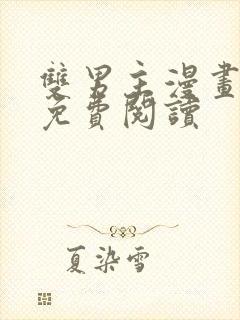 雙男主漫畫
免費閱讀
夏染雪